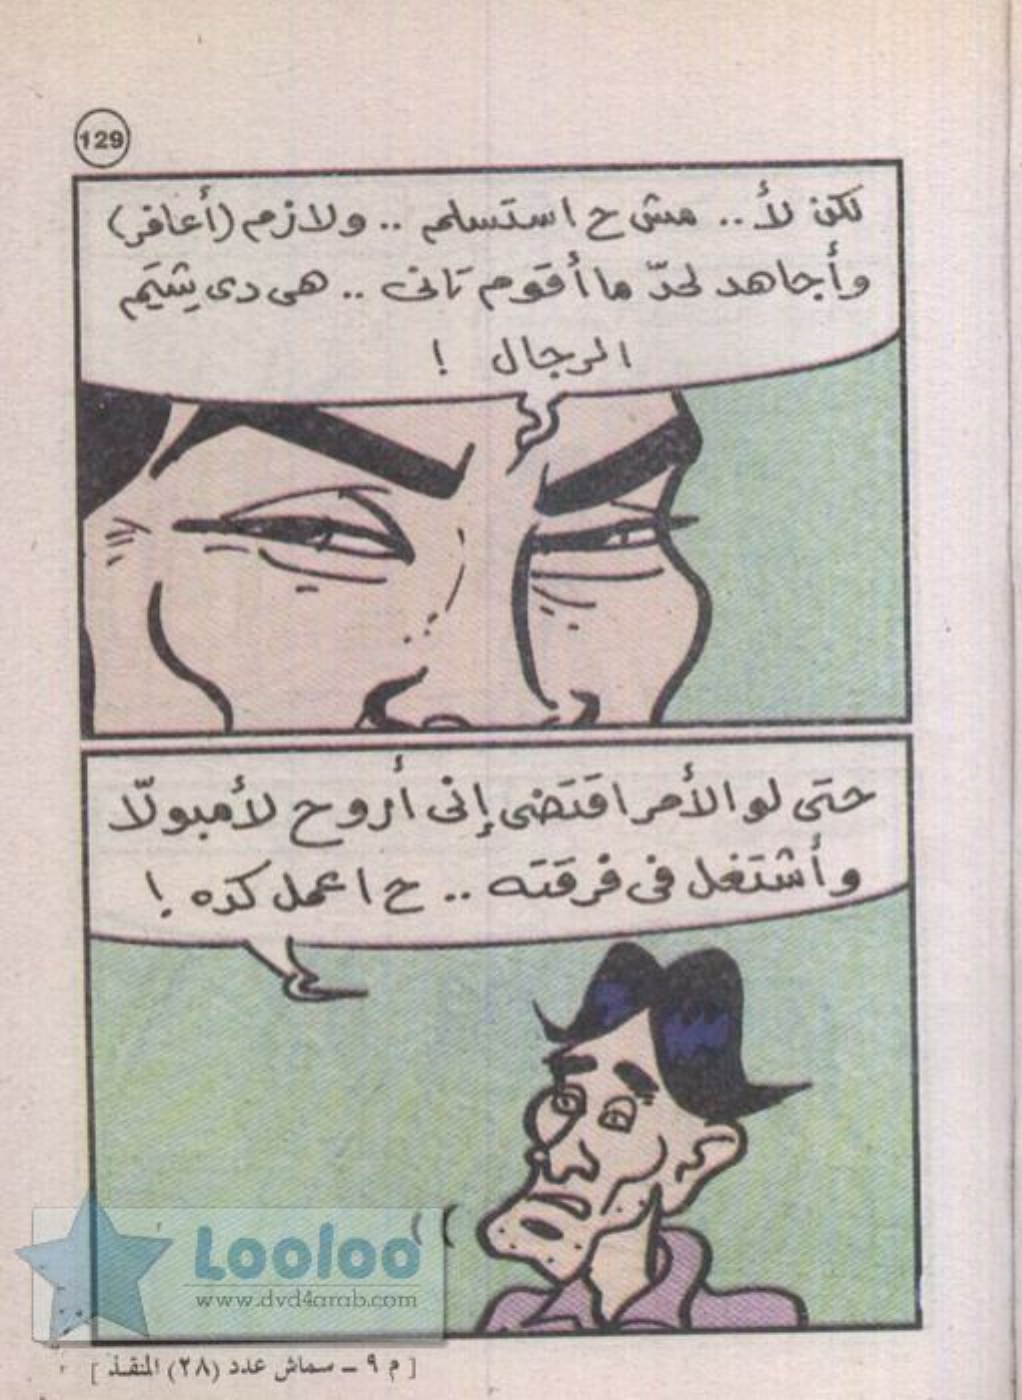 129
لكن لأ .. مش ح استسلم .. ولازم (أعافر)
وأجاهد لحدّ ما أقوم تانى .. هى دى شِيَم
الرجال !
حتى لو الأمر اقتضى إنى أروح لأمبولّا
وأشتغل فى فرقته .. ح اعمل كده !
Looloo
www.dvd4arab.com
[ م ٩ ــ سماش عدد (٢٨) المنقذ ]